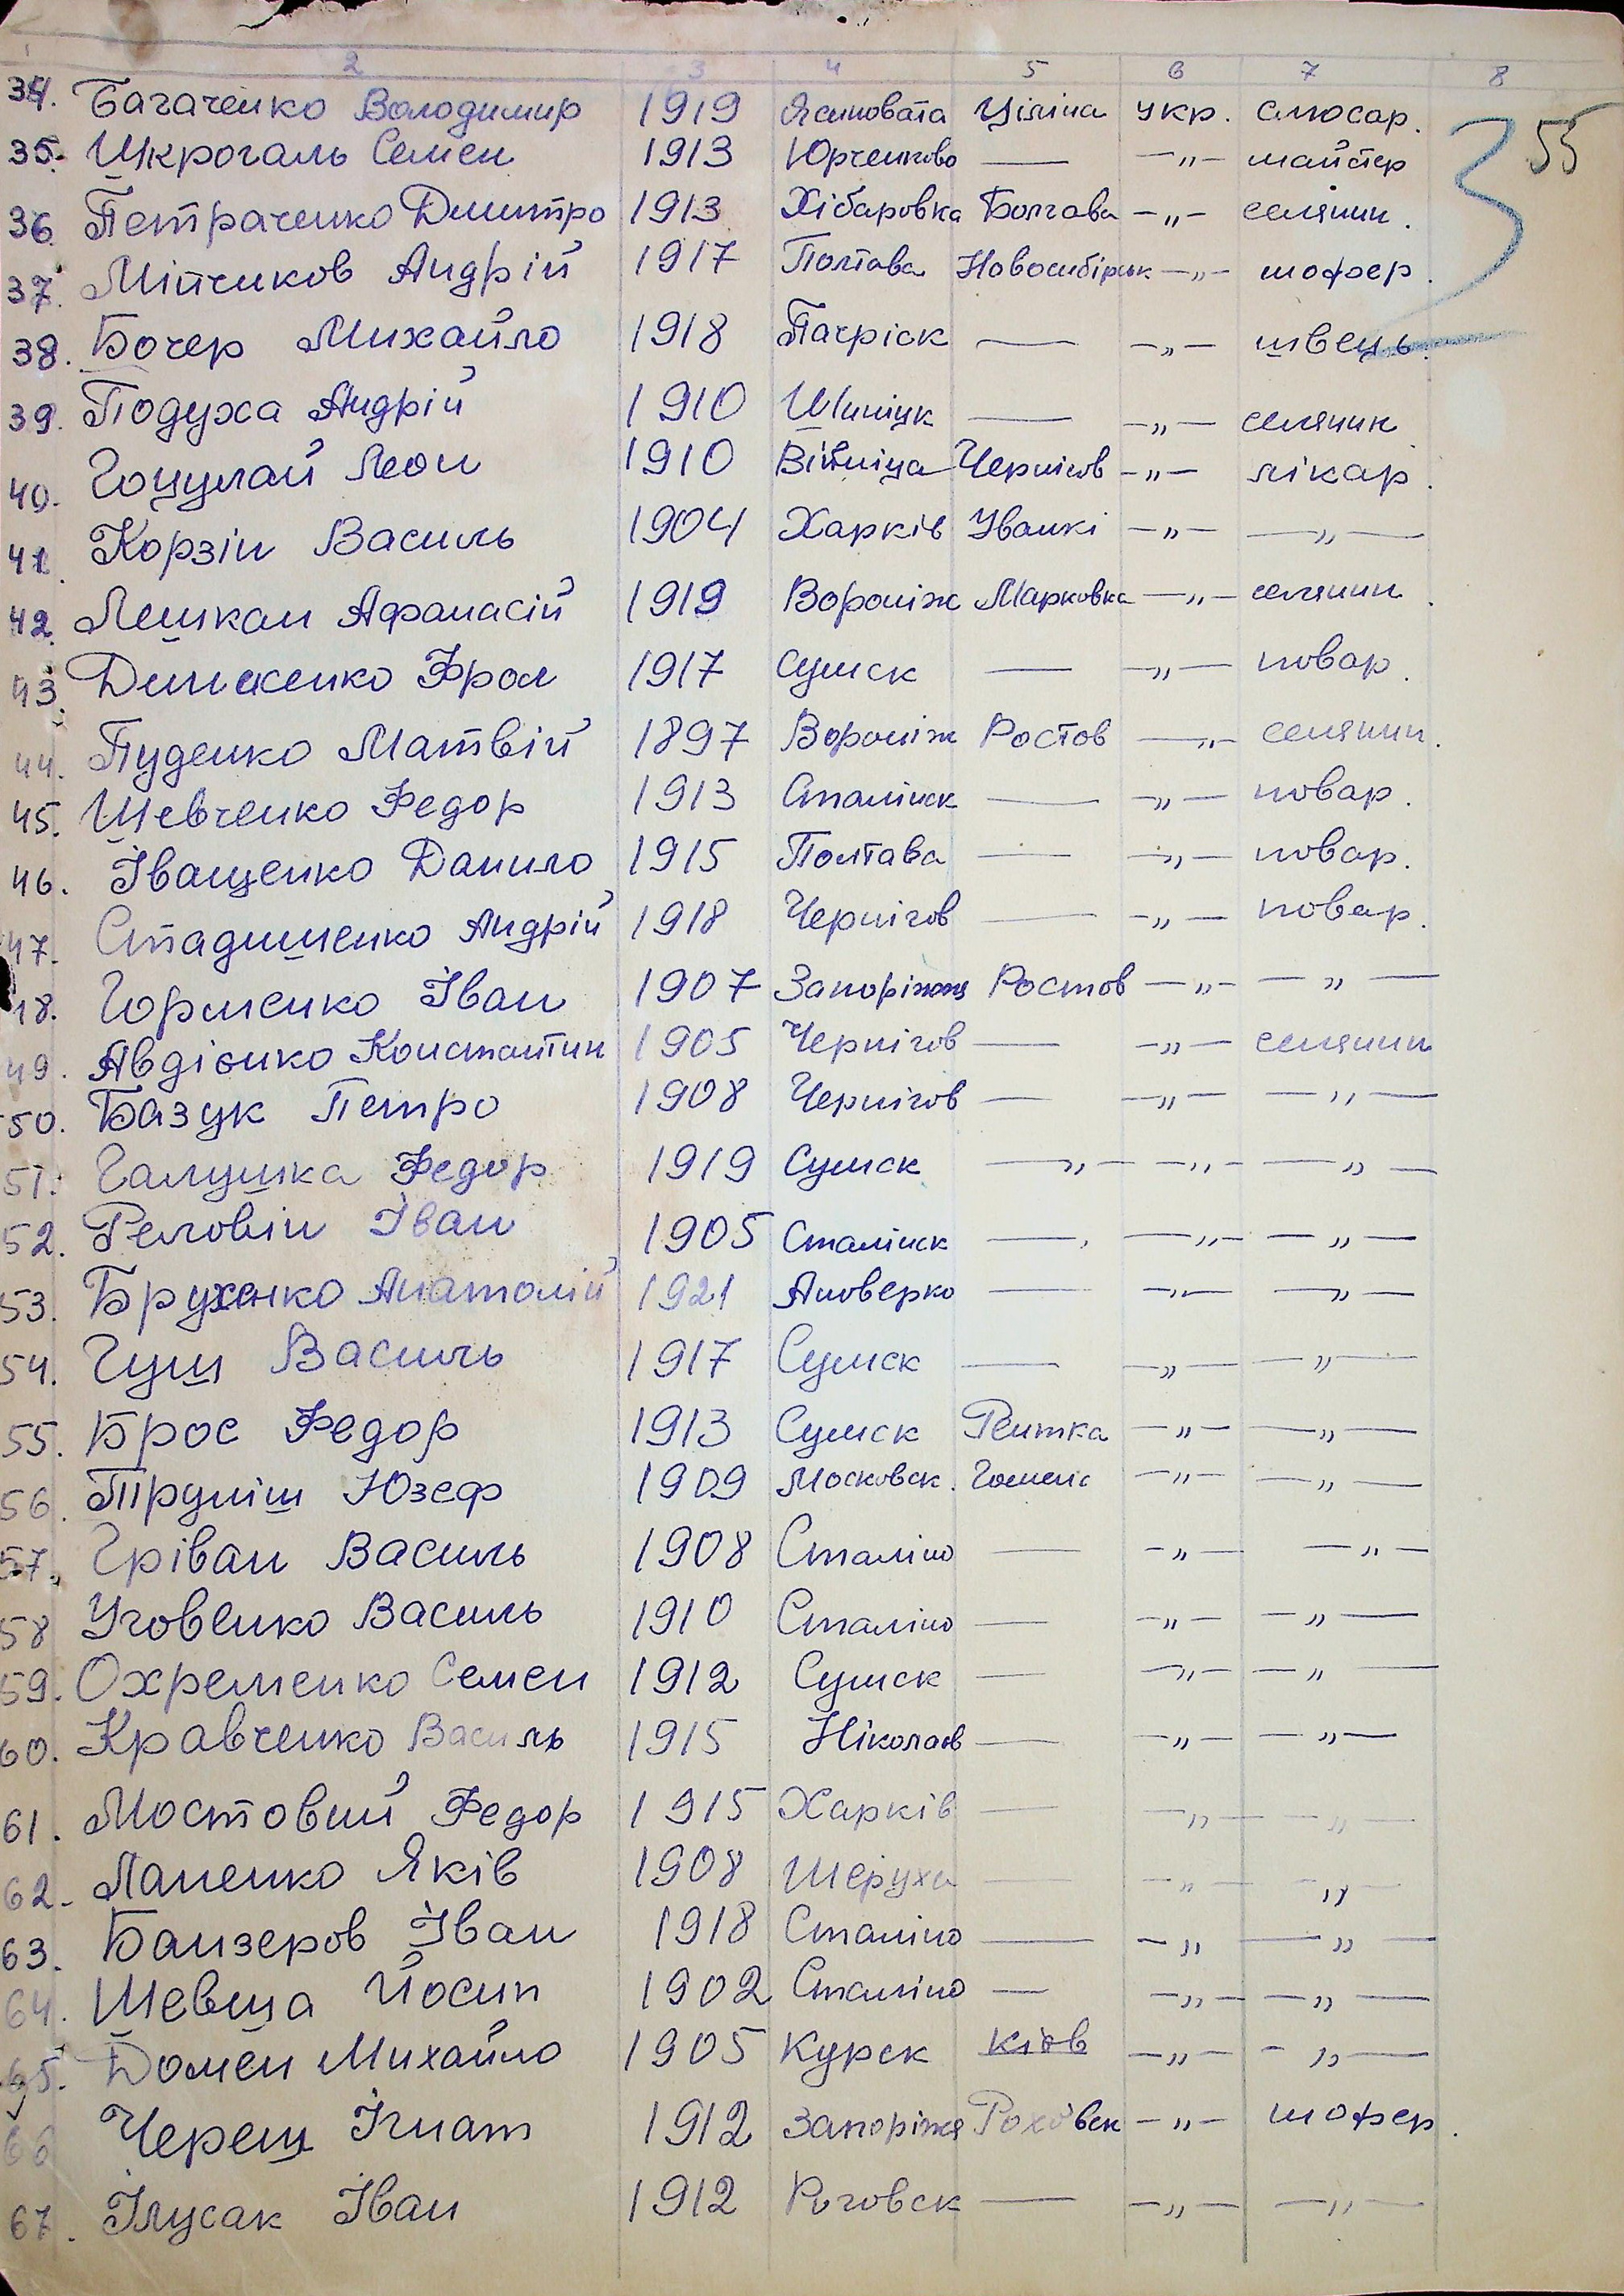 1 2 3 4 5 6 7 8
55
34. Багаченко Володимир 1919 Ясиновата Ціліна укр. слюсар.
35. Шкрогаль Семен 1913 Юрченково — —„— майстер
36. Петраченко Дмитро 1913 Хібаровка Болгава —„— селянин.
37. Мітчиков Андрій 1917 Полтава Новосибірськ —„— шофер.
38. Бочер Михайло 1918 Пагріск — —„— швець.
39. Подуха Андрій 1910 — —„— селянин
40. Гоцулай Леон 1910 Вінніца Чернігов —„— лікар.
41. Корзін Василь 1904 Харків Уванкі —„— —„—
42. Лешкан Афанасій 1919 Вороніж Марковка —„— селянин.
43. Фрол 1917 Сумск — —„— повар.
44. Пуденко Матвій 1897 Вороніж Ростов —„— селянин.
45. Шевченко Федор 1913 Сталінск — —„— повар.
46. Іващенко Данило 1915 Полтава — —„— повар.
47. Стадниченко Андрій 1918 Чернігов — —„— повар.
48. Горленко Іван 1907 Запоріжжя Ростов —„— —„—
49. Авдієнко Константин 1905 Чернігов — —„— селянин
50. Базук Петро 1908 Чернігов — —„— —„—
51. Галушка Федор 1919 Сумск —„— —„— —„—
52. Реловін Іван 1905 Сталінск — —„— —„—
53. Брухенко Анатолій 1921 Ановерко — —„— —„—
54. Гущ Василь 1917 Сумск — —„— —„—
55. Брос Федор 1913 Сумск Решка —„— —„—
56. Пруніш Юзеф 1909 Московск. Гомель —„— —„—
57. Гріван Василь 1908 Сталіно — —„— —„—
58. Уговенко Василь 1910 Сталіно — —„— —„—
59. Охременко Семен 1912 Сумск — —„— —„—
60. Кравченко Василь 1915 Ніколаєв — —„— —„—
61. Мостовий Федор 1915 Харків — —„— —„—
62. Лапенко Яків 1908 Шеруха — —„— „
63. Банзеров Іван 1918 Сталіно — —„— —„—
64. Шевша Йосип 1902 Сталіно — —„— —„—
65. Домен Михайло 1905 Курск Кіов —„— —„—
66 Череш Ігнат 1912 Запоріжя —„— шофер.
67. Ілусак Іван 1912 Роговск — —„— —„—